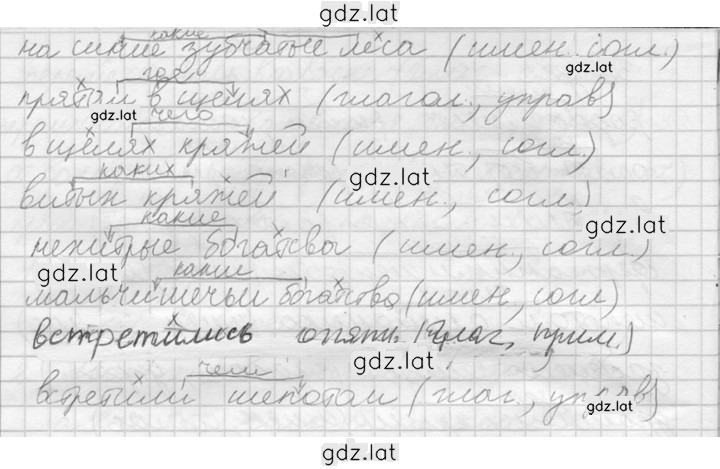 gdz.lat
какие
на синие зубчатые леса (имен. согл.)
gdz.lat
где
прятали в щелях (глагол., управ)
gdz.lat
чего
в щелях кряжей (имен., согл.)
gdz.lat
каких
витых кряжей (имен., согл.)
gdz.lat
какие
нехитрые богатсва (имен., согл.)
gdz.lat
какие
мальчишечьи богатство (имен, согл)
встретились опять (глаг, прим.)
gdz.lat
чем
встретили шепотом (глаг., управ)
gdz.lat
gdz.lat